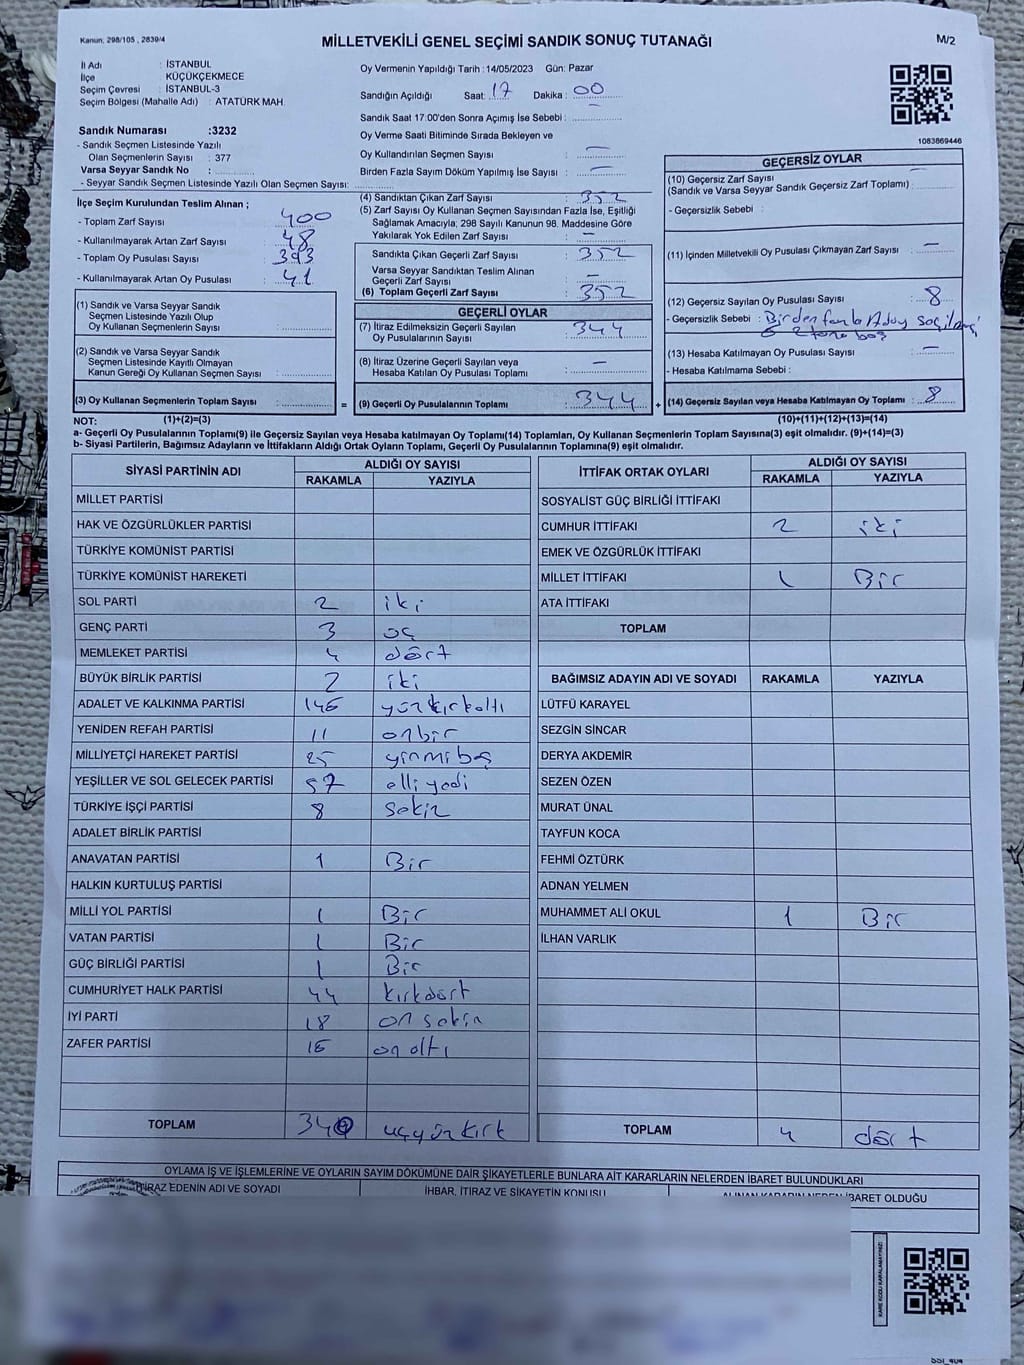 Kanun, 298/105 , 2839/4
MİLLETVEKİLİ GENEL SEÇİMİ SANDIK SONUÇ TUTANAĞI
M/2
İl Adı : İSTANBUL
İlçe : KÜÇÜKÇEKMECE
Seçim Çevresi : İSTANBUL-3
Seçim Bölgesi (Mahalle Adı) : ATATÜRK MAH.
Sandık Numarası :3232
- Sandık Seçmen Listesinde Yazılı
Olan Seçmenlerin Sayısı : 377
Varsa Seyyar Sandık No :
- Seyyar Sandık Seçmen Listesinde Yazılı Olan Seçmen Sayısı:
Oy Vermenin Yapıldığı Tarih :14/05/2023 Gün: Pazar
Sandığın Açıldığı Saat: 17 Dakika : 00
Sandık Saat 17:00'den Sonra Açımış İse Sebebi :
Oy Verme Saati Bitiminde Sırada Bekleyen ve
Oy Kullandırılan Seçmen Sayısı : —
Birden Fazla Sayım Döküm Yapılmış İse Sayısı : —
1083869446
İlçe Seçim Kurulundan Teslim Alınan ;
- Toplam Zarf Sayısı : 400
- Kullanılmayarak Artan Zarf Sayısı : 48
- Toplam Oy Pusulası Sayısı : 393
- Kullanılmayarak Artan Oy Pusulası : 41
(1) Sandık ve Varsa Seyyar Sandık
Seçmen Listesinde Yazılı Olup
Oy Kullanan Seçmenlerin Sayısı :
(2) Sandık ve Varsa Seyyar Sandık
Seçmen Listesinde Kayıtlı Olmayan
Kanun Gereği Oy Kullanan Seçmen Sayısı :
(3) Oy Kullanan Seçmenlerin Toplam Sayısı : =
(4) Sandıktan Çıkan Zarf Sayısı : 352
(5) Zarf Sayısı Oy Kullanan Seçmen Sayısından Fazla İse, Eşitliği
Sağlamak Amacıyla; 298 Sayılı Kanunun 98. Maddesine Göre
Yakılarak Yok Edilen Zarf Sayısı : —
Sandıkta Çıkan Geçerli Zarf Sayısı : 352
Varsa Seyyar Sandıktan Teslim Alınan
Geçerli Zarf Sayısı : —
(6) Toplam Geçerli Zarf Sayısı : 352
GEÇERLİ OYLAR
(7) İtiraz Edilmeksizin Geçerli Sayılan
Oy Pusulalarının Sayısı : 344
(8) İtiraz Üzerine Geçerli Sayılan veya
Hesaba Katılan Oy Pusulası Toplamı : —
(9) Geçerli Oy Pusulalarının Toplamı : 344 +
GEÇERSİZ OYLAR
(10) Geçersiz Zarf Sayısı
(Sandık ve Varsa Seyyar Sandık Geçersiz Zarf Toplamı) :
- Geçersizlik Sebebi :
(11) İçinden Milletvekili Oy Pusulası Çıkmayan Zarf Sayısı : —
(12) Geçersiz Sayılan Oy Pusulası Sayısı : 8
- Geçersizlik Sebebi : Birden fazla Aday seçilmiş
2 tane boş
(13) Hesaba Katılmayan Oy Pusulası Sayısı : —
- Hesaba Katılmama Sebebi :
(14) Geçersiz Sayılan veya Hesaba Katılmayan Oy Toplamı : 8
NOT: (1)+(2)=(3) (10)+(11)+(12)+(13)=(14)
a- Geçerli Oy Pusulalarının Toplamı(9) ile Geçersiz Sayılan veya Hesaba katılmayan Oy Toplamı(14) Toplamları, Oy Kullanan Seçmenlerin Toplam Sayısına(3) eşit olmalıdır. (9)+(14)=(3)
b- Siyasi Partilerin, Bağımsız Adayların ve İttifakların Aldığı Ortak Oyların Toplamı, Geçerli Oy Pusulalarının Toplamına(9) eşit olmalıdır.
SİYASİ PARTİNİN ADI ALDIĞI OY SAYISI
RAKAMLA YAZIYLA
MİLLET PARTİSİ
HAK VE ÖZGÜRLÜKLER PARTİSİ
TÜRKİYE KOMÜNİST PARTİSİ
TÜRKİYE KOMÜNİST HAREKETİ
SOL PARTİ 2 iki
GENÇ PARTİ 3 üç
MEMLEKET PARTİSİ 4 dört
BÜYÜK BİRLİK PARTİSİ 2 iki
ADALET VE KALKINMA PARTİSİ 146 yüzkırkaltı
YENİDEN REFAH PARTİSİ 11 onbir
MİLLİYETÇİ HAREKET PARTİSİ 25 yirmi beş
YEŞİLLER VE SOL GELECEK PARTİSİ 57 elli yedi
TÜRKİYE İŞÇİ PARTİSİ 8 sekiz
ADALET BİRLİK PARTİSİ
ANAVATAN PARTİSİ 1 Bir
HALKIN KURTULUŞ PARTİSİ
MİLLİ YOL PARTİSİ 1 Bir
VATAN PARTİSİ 1 Bir
GÜÇ BİRLİĞİ PARTİSİ 1 Bir
CUMHURİYET HALK PARTİSİ 44 kırkdört
İYİ PARTİ 18 on sekiz
ZAFER PARTİSİ 16 on altı
TOPLAM 340 üçyüzkırk
İTTİFAK ORTAK OYLARI ALDIĞI OY SAYISI
RAKAMLA YAZIYLA
SOSYALİST GÜÇ BİRLİĞİ İTTİFAKI
CUMHUR İTTİFAKI 2 iki
EMEK VE ÖZGÜRLÜK İTTİFAKI
MİLLET İTTİFAKI 1 Bir
ATA İTTİFAKI
TOPLAM
BAĞIMSIZ ADAYIN ADI VE SOYADI RAKAMLA YAZIYLA
LÜTFÜ KARAYEL
SEZGİN SİNCAR
DERYA AKDEMİR
SEZEN ÖZEN
MURAT ÜNAL
TAYFUN KOCA
FEHMİ ÖZTÜRK
ADNAN YELMEN
MUHAMMET ALİ OKUL 1 Bir
İLHAN VARLIK
TOPLAM 4 dört
OYLAMA İŞ VE İŞLEMLERİNE VE OYLARIN SAYIM DÖKÜMÜNE DAİR ŞİKAYETLERLE BUNLARA AİT KARARLARIN NELERDEN İBARET BULUNDUKLARI
İTİRAZ EDENİN ADI VE SOYADI İHBAR, İTİRAZ VE ŞİKAYETİN KONUSU ALINAN KARARIN NEDEN İBARET OLDUĞU
KARE KODU KARALAMAYINIZ!